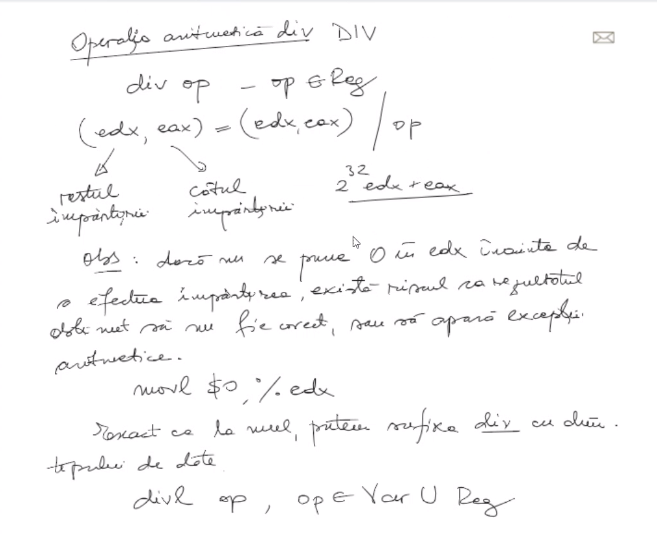 Operația aritmetică div DIV
div op – op ∈ Reg
(edx, eax) = (edx, eax) / op
restul câtul 2^32 edx + eax
împărțirii împărțirii
Obs : dacă nu se pune 0 în edx înainte de
a efectua împărțirea, există riscul ca rezultatul
obținut să nu fie corect, sau să apară excepții
aritmetice.
movl $0, %edx
Exact ca la mul, putem sufixa div cu dim.
tipului de date
divl op , op ∈ Var ∪ Reg